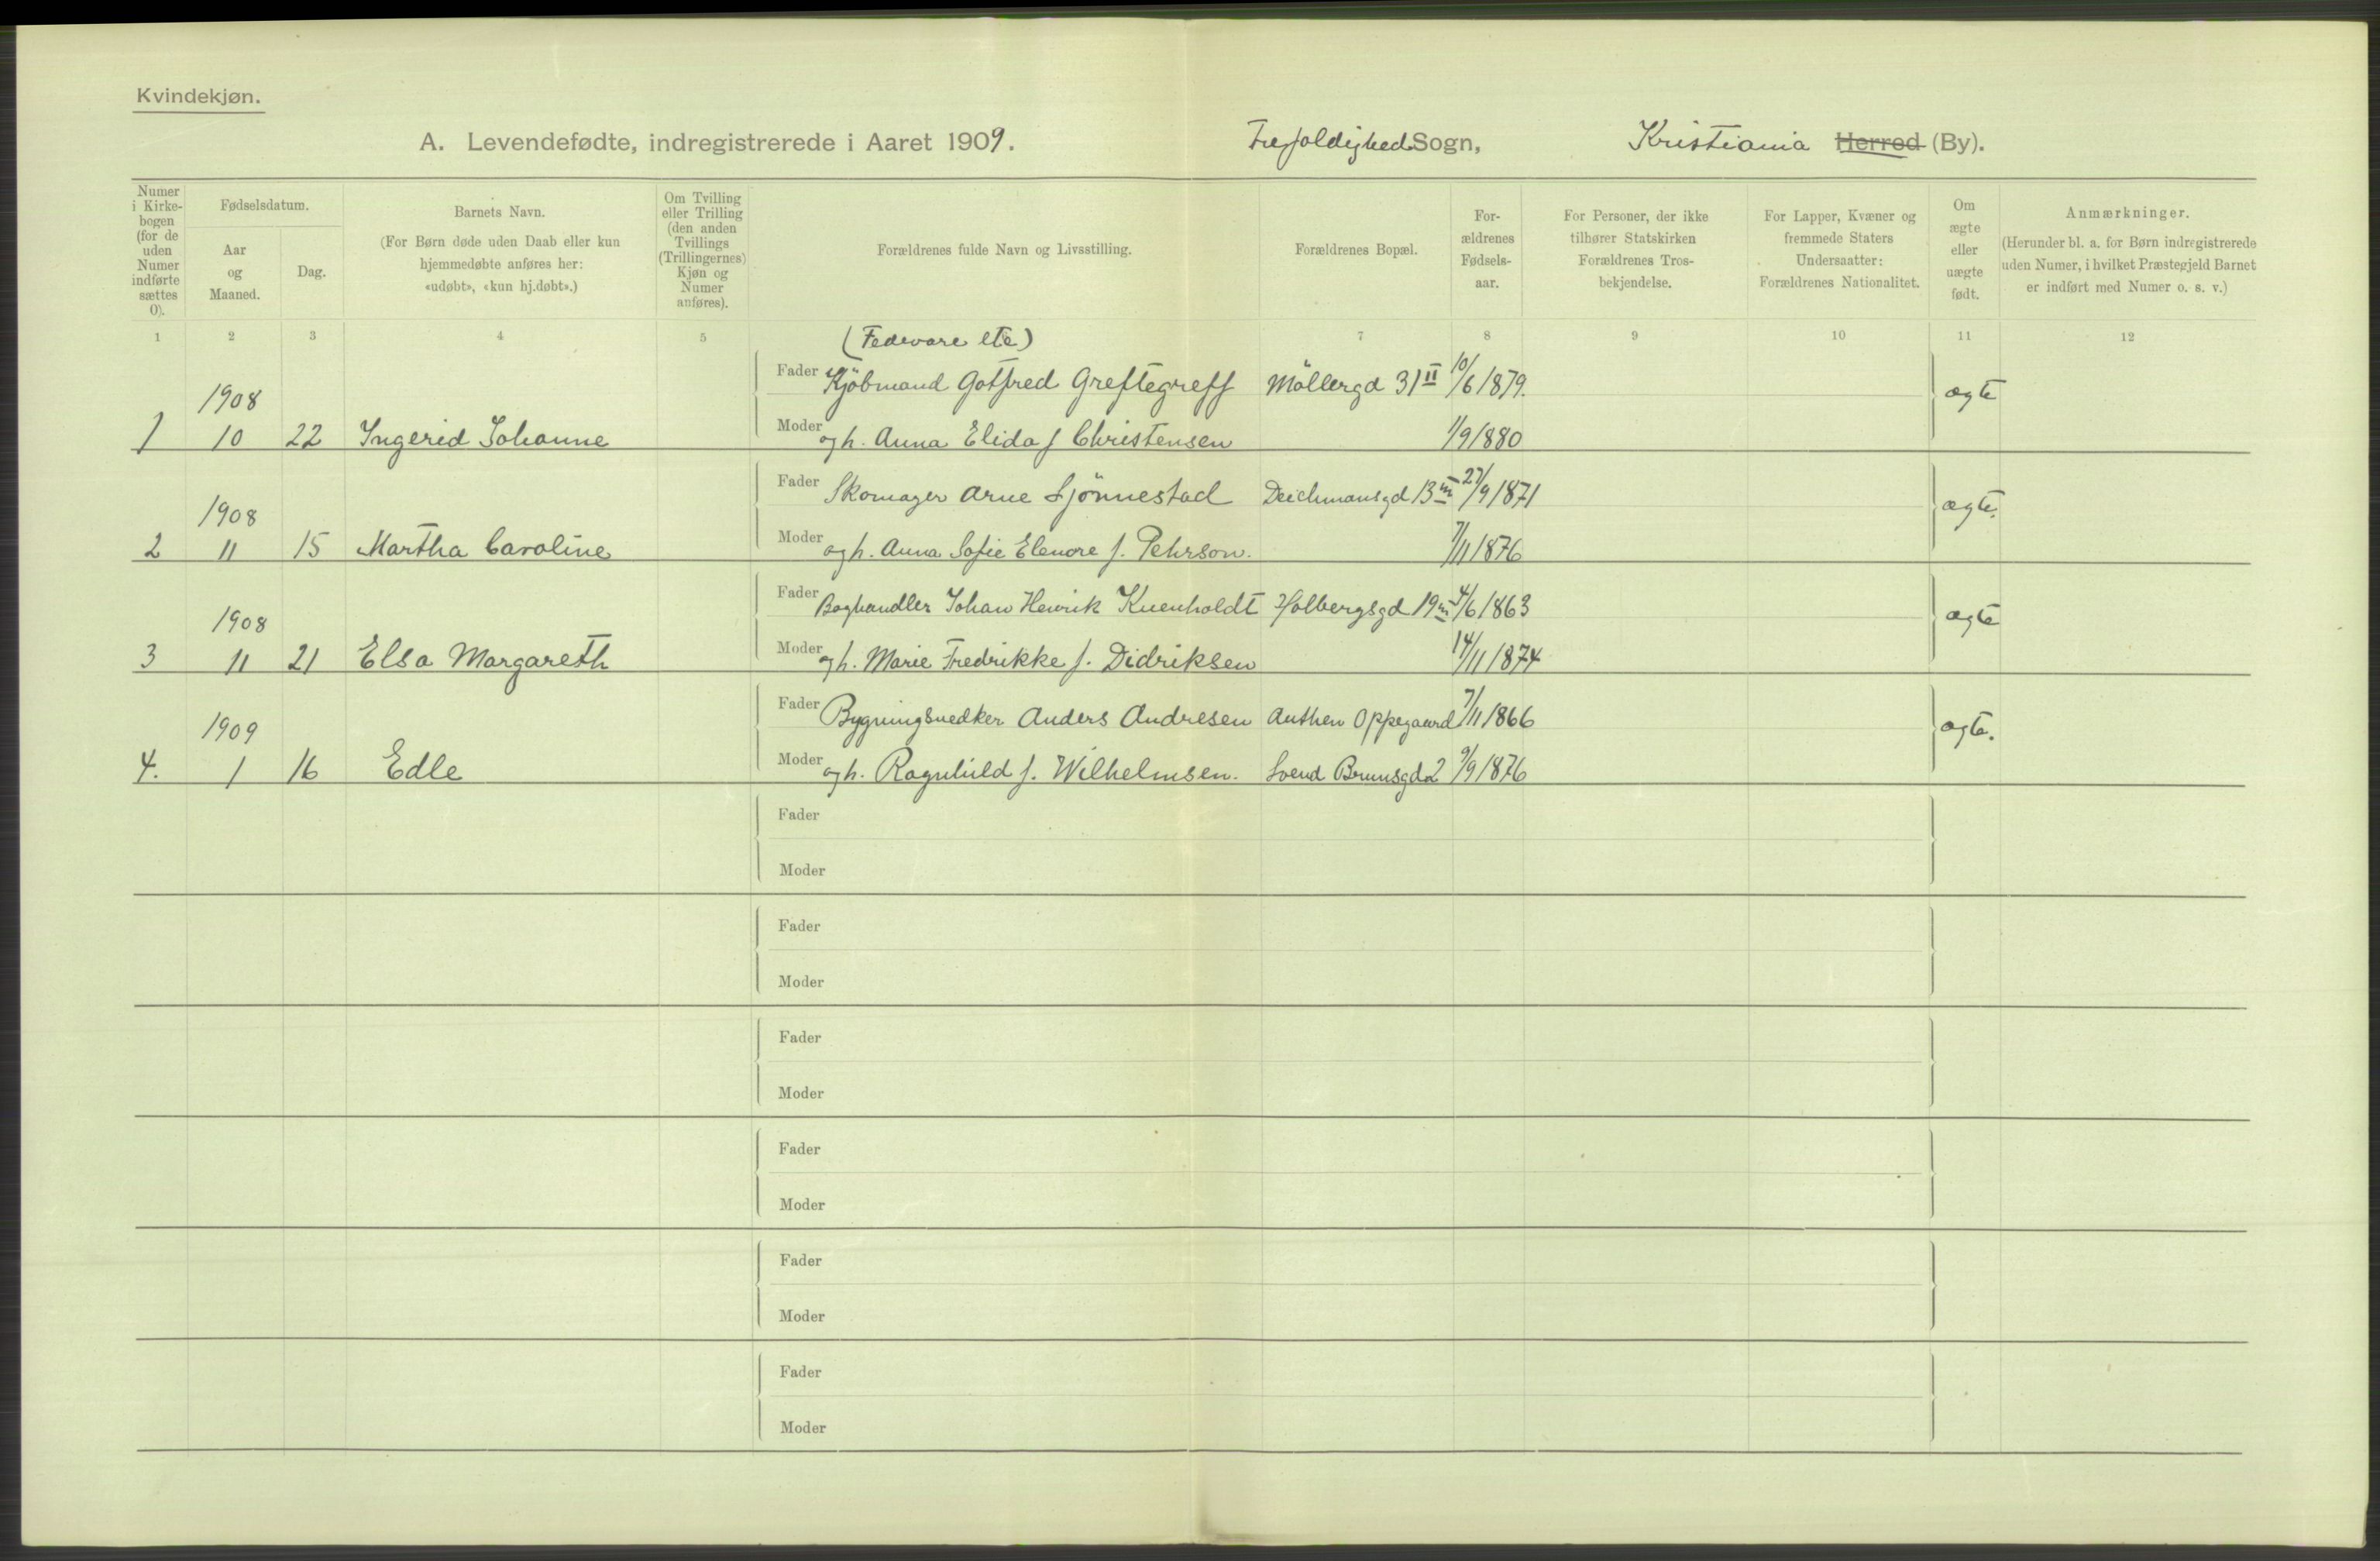 Kvindekjøn.
A. Levendefødte, indregistrerede i Aaret 1909. Trefoldighed Sogn, Kristiania Herred (By).
Numer i Kirkebogen (for de uden Numer indførte sættes 0).
Fødselsdatum.
Aar og Maaned.
Dag.
Barnets Navn.
(For Børn døde uden Daab eller kun hjemmedøbte anføres her: «udøbt», «kun hj.døbt».)
Om Tvilling eller Trilling (den anden Tvillings (Trillingernes) Kjøn og Numer anføres).
Forældrenes fulde Navn og Livsstilling.
Forældrenes Bopæl.
For-ældrenes Fødsels-aar.
For Personer, der ikke tilhører Statskirken Forældrenes Tros-bekjendelse.
For Lapper, Kvæner og fremmede Staters Undersaatter: Forældrenes Nationalitet.
Om ægte eller uægte født.
Anmærkninger.
(Herunder bl. a. for Børn indregistrerede uden Numer, i hvilket Præstegjeld Barnet er indført med Numer o. s. v.)
1 2 3 4 5 7 8 9 10 11 12
(Fedevare etc)
Fader Kjöbmand Gotfred Greftegreff Möllergd 31 II 10/6 1879. ægte
1908
1 10 22 Ingerid Johanne Moder og h. Anna Elida f Christensen 1/9 1880
Fader Skomager Arne Sjönnestad Deichmansgd 13 III 27/9 1871 ægte.
1908
2 11 15 Martha Caroline Moder og h. Anna Sofie Elenore f. Pehrson. 7/11 1876
Fader Boghandler Johan Henrik Kuenholdt Holbergsgd 19 III 4/6 1863 ægte
1908
3 11 21 Elsa Margareth Moder og h. Marie Fredrikke f. Didriksen 14/11 1874
Fader Bygningsnedker Anders Andresen Authen Oppegaard 7/11 1866 ægte.
1909
4. 1 16 Edle Moder og h. Ragnhild f. Wilhelmsen. Svend Brunsgd 2 9/9 1876
Fader
Moder
Fader
Moder
Fader
Moder
Fader
Moder
Fader
Moder
Fader
Moder